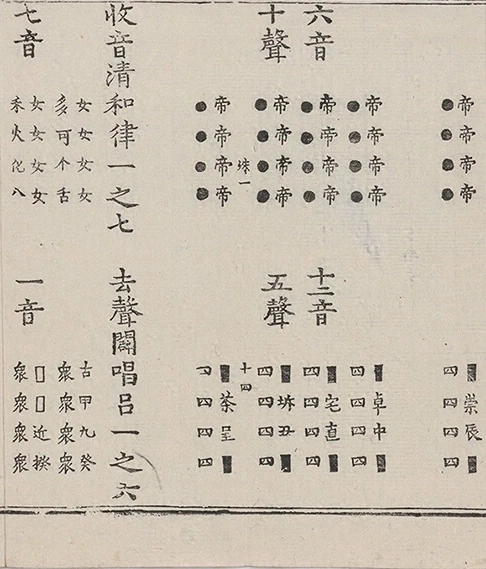 帝帝帝帝
●●●●
■崇辰■
四四四四
帝帝帝帝
●●●●
■卓中■
四四四四
六音
十聲
帝帝帝帝
●●●●
帝帝帝帝
●●●●
十二音
五聲
■宅直■
四四四四
■坼丑■
四四四四
一
十四
帝帝帝帝
●●●●
■茶呈■
四四四
收音清和律一之七
去聲闢唱呂一之六
七音
女女女女
多可个舌
女女女女
禾火化八
一音
古甲九癸
眾眾眾眾
□□近揆
眾眾眾眾